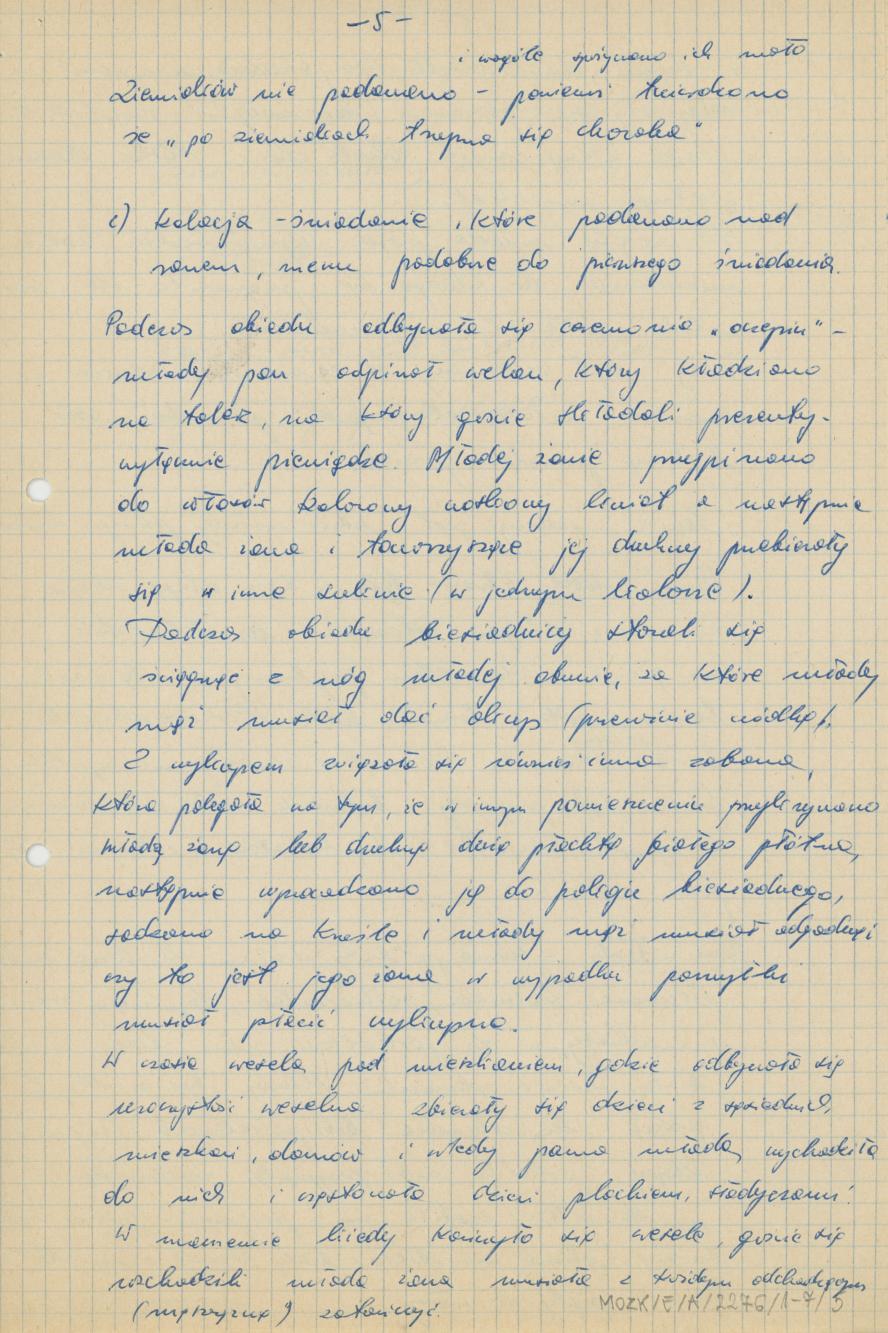 -5-
i wogóle spożywano ich mało
Ziemniaków nie podawano - ponieważ twierdzono
że „po ziemniakach trzepna się choroba"
c) kolacja - śniadanie, które podawano nad
ranem, menu podobne do pierwszego śniadania.
Podczas obiadu odbywała się ceremonia „oczepin" -
młody pan odpinał welon, który kładziono
na talerz, na który goście składali prezenty -
wyłącznie pieniądze. Młodej żonie przypinano
do włosów kolorowy woskowy kwiat a następnie
młoda żona i towarzyszące jej druhny przebierały
się w inne suknie (w jednym kolorze).
Podczas obiadu biesiadnicy starali się
ściągnąć z nóg młodej obuwie, za które młody
mąż musiał dać okup (przeważnie wódkę).
Z wykupem związała się również inna zabawa,
która polegała na tym, że w innym pomieszczeniu przykrywano
młodą żonę lub druhnę dużą płachtą białego płótna,
następnie wprowadzono ją do pokoju biesiadnego,
sadzano na krześle i młody mąż musiał odgadnąć
czy to jest jego żona w wypadku pomyłki
musiał płacić wykupna.
W czasie wesela pod mieszkaniem, gdzie odbywała się
uroczystość weselna zbierały się dzieci z sąsiednich
mieszkań, domów i wtedy panna młoda wychodziła
do nich i częstowała dzieci plackiem, słodyczami.
W momencie kiedy kończyło się wesele, goście się
rozchodzili młoda żona musiała z każdym odchodzącym
(mężczyzną) zatańczyć.
MOZK/E/A/2276/1-7/5